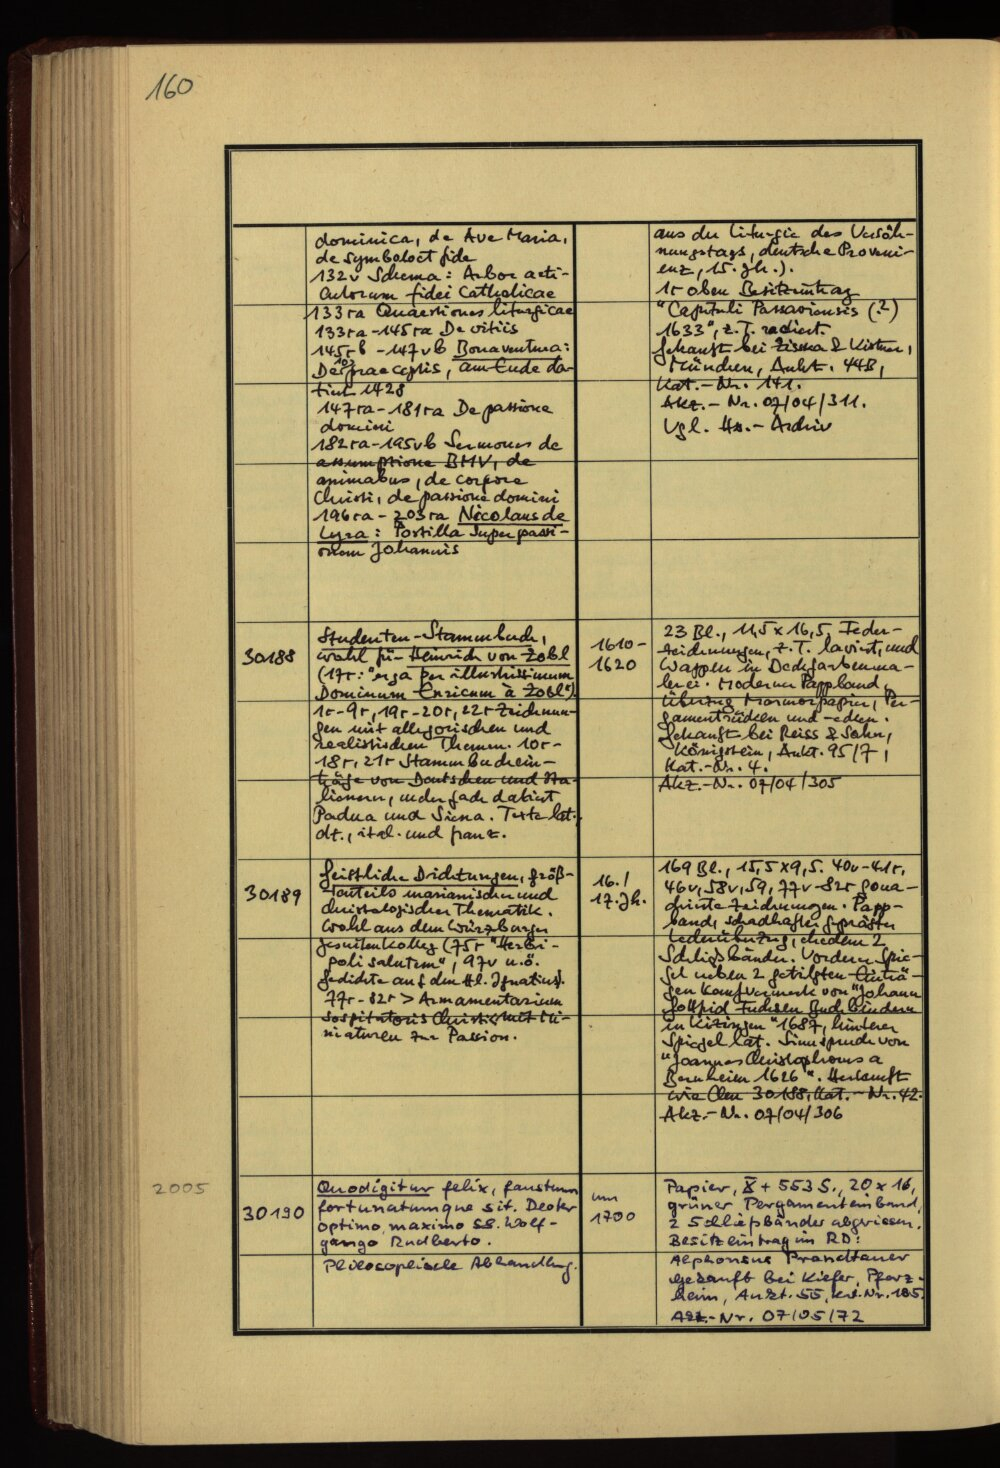 160
dominica, de Ave Maria,
de symbolo et fide
132v Schema: Arbor arti-
culorum fidei Catholicae
133ra Quaestiones liturgicae
133ra-145ra De vitiis
145rb-147vb Bonaventura:
De praeceptis, am Ende da-
tiert 1428
147ra-181ra De passione
domini
182ra-195vb Sermones de
assumptione BMV, de
animabus, de corpore
Christi, de passione domini
196ra-203ra Nicolaus de
Lyra: Postilla super passi-
onem Johannis
aus der Liturgie des Versöh-
nungstags, deutsche Proveni-
enz, 15. Jh.).
1r oben Besitzeintrag
"Capituli Passaviensis (?)
1633", z.T. radiert.
Gekauft bei Zisska & Kistner,
München, Aukt. 44B,
Kat.-Nr. 141.
Akz.-Nr. 07/04/311.
Vgl. Hs.-Archiv
30188
Studenten-Stammbuch,
wohl für Heinrich von Zobl
(17r: "erga per illustrissimum
Dominum Enricum à Zobl").
1r-9r, 19r-20r, 22r Zeichnun-
gen mit allegorischen und
realistischen Themen. 10r-
18r, 21r Stammbuchein-
träge von Deutschen und Ita-
lienern, mehrfach datiert
Padua und Siena. Texte lat.,
dt., ital. und franz.
1610-
1620
23 Bl., 11,5 x 16,5, Feder-
zeichnungen, z.T. laviert, und
Wappen in Deckfarbenma-
lerei. Moderner Pappband,
Überzug Marmorpapier, Per-
gamentrücken und -ecken.
Gekauft bei Reiss & Sohn,
Königstein, Aukt. 95/7,
Kat.-Nr. 4.
Akz.-Nr. 07/04/305
30189
Geistliche Dichtungen, größ-
tenteils marianischer und
christologischer Thematik.
Wohl aus dem Würzburger
Jesuitenkolleg (75r "Herbi-
poli salutem", 97v u.ö.
Gedichte auf den Hl. Ignatius).
77r-82r > Armamentarium
sospitatoris Christi< mit Mi-
niaturen zur Passion.
16./
17. Jh.
169 Bl., 15,5 x 9,5. 40v-41r,
46v, 58v, 59, 77v-82r goua-
chierte Zeichnungen. Papp-
band, schadhafter geprägter
Lederüberzug, ehedem 2
Schließbänder. Vorderer Spie-
gel neben 2 getilgten Einträ-
gen Kaufvermerk von "Johann
Gottfrid Fuchsen Buchbindern
in Kitzingen" 1687, hinterer
Spiegel lat. Sinnspruch von
"Joannes Christophorus a
Bernheim 1626". Herkunft
wie Clm 30188, Kat.-Nr. 42.
Akz.-Nr. 07/04/306
2005
30190
Quod igitur felix, faustum
fortunatumque sit. Deo ter
optimo, maximo SS. Wolf-
gango Rudberto.
Philosophische Abhandlung.
um
1700
Papier, X + 553 S., 20 x 16,
grüner Pergamenteinband,
2 Schließbänder abgerissen.
Besitzeintrag im RD:
Alphonsus Prandtauer
gekauft bei Kiefer, Pforz-
heim, Aukt. 55, Kat.Nr. 185.
Akz.-Nr. 07/05/72